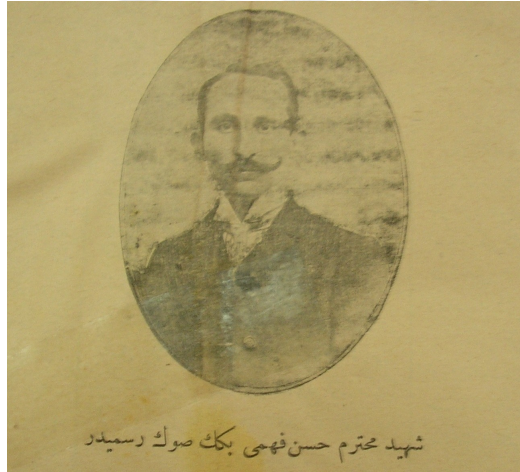 شهید محترم حسن فهمی بكك صوك رسمیدر